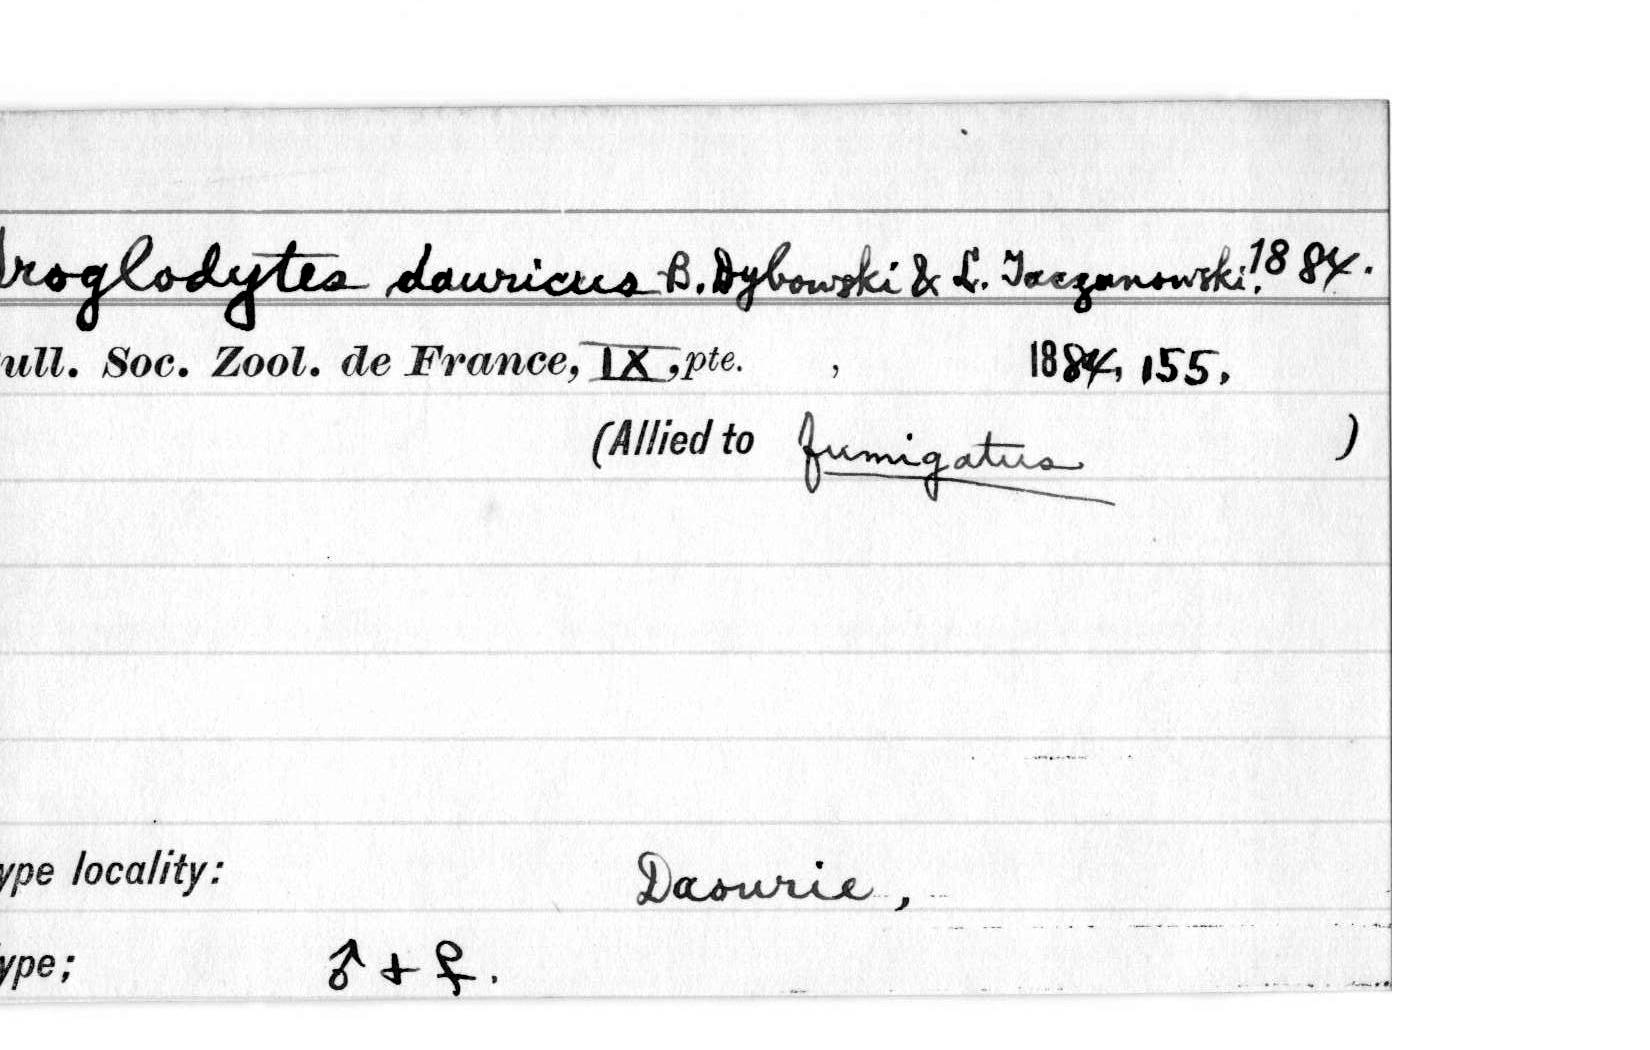 Troglodytes dauricus B. Dybowski & L. Taczanowski, 1884.
ull. Soc. Zool. de France, IX, pte. , 1884, 155.
(Allied to fumigatus )
ype locality: Daourie,
ype; ♂ + ♀.